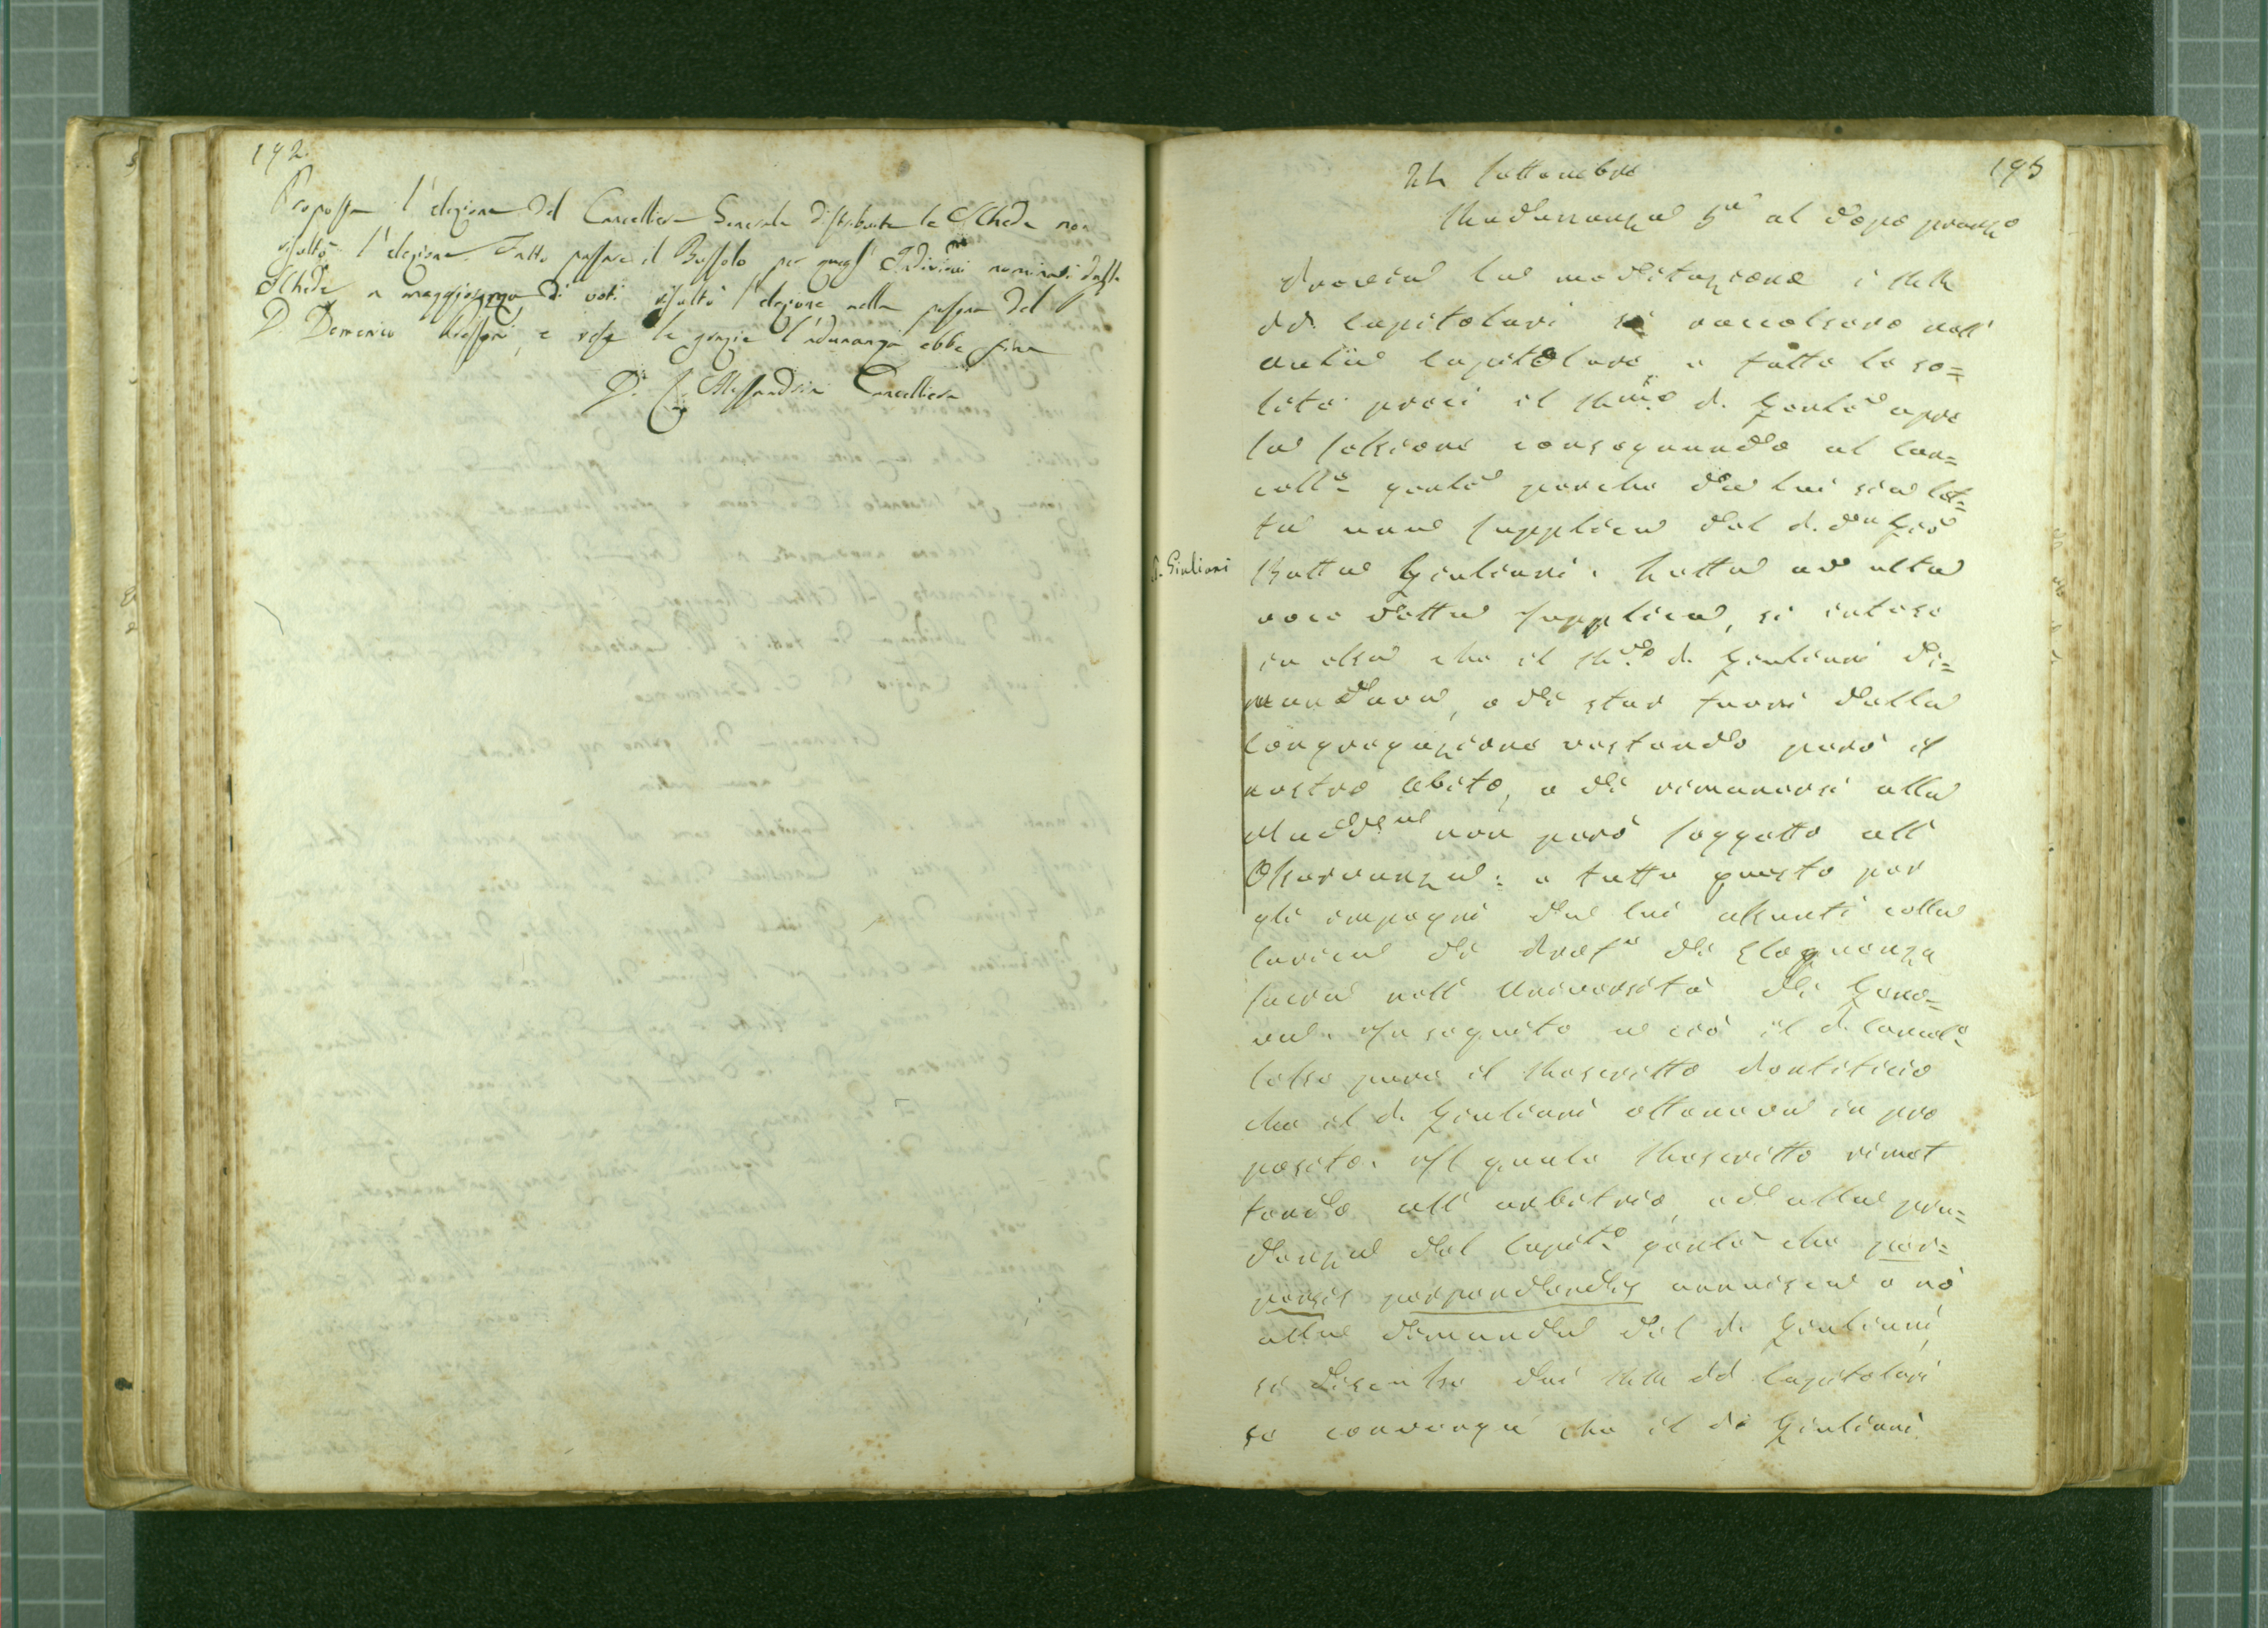 192.
Proposta l'elezione del Cancelliere Generale distribuite le Schede non
risultò l'elezione. Fatto passare il Bussolo per quegl' Individui nominati dalle
Schede a maggioranza di voti risultò l'elezione nella persona del P.
D. Domenico, e rese le grazie l'adunanza ebbe fine
D. C. Alessandria Cancelliere
193
24 Settembre
Radunanza 5a al dopo pranzo
Previa la meditazione i RR.
PP. Capitolari si raccolsero nell'
aula Capitolare, e fatte le so=
lite preci il Rmo P. Gentle apre
la Sessione consegnando al Can=
cellre gentle perchè da lui sia let=
ta una Supplica del P. Dn Gio
P. Giuliani
Batta Giuliani. Letta ad alta
voce detta Supplica, si intese
in essa che il Rdo P. Giuliani di=
mandava, o di star fuori della
Congregazione restando però il
nostro abito, o di rimanersi alla
Maddna non però soggetto all'
Osservanza: e tutto questo per
gli impegni da lui assunti colla
carica di Profe di Eloquenza
Sacra nell'Università di Geno=
va. In seguito a ciò il P. Cancele
lesse pure il Rescritto Pontificio
che il P. Giuliani otteneva in pro
posito. Il quale Rescritto rimet
tendo all'arbitrio, ed alla pru=
denza del Capito gentle che per=
pensis perpendendis annuisca o nò
alla dimanda del P. Giuliani,
si discusse dai RR. PP. Capitolari
se convenga che il P. Giuliani